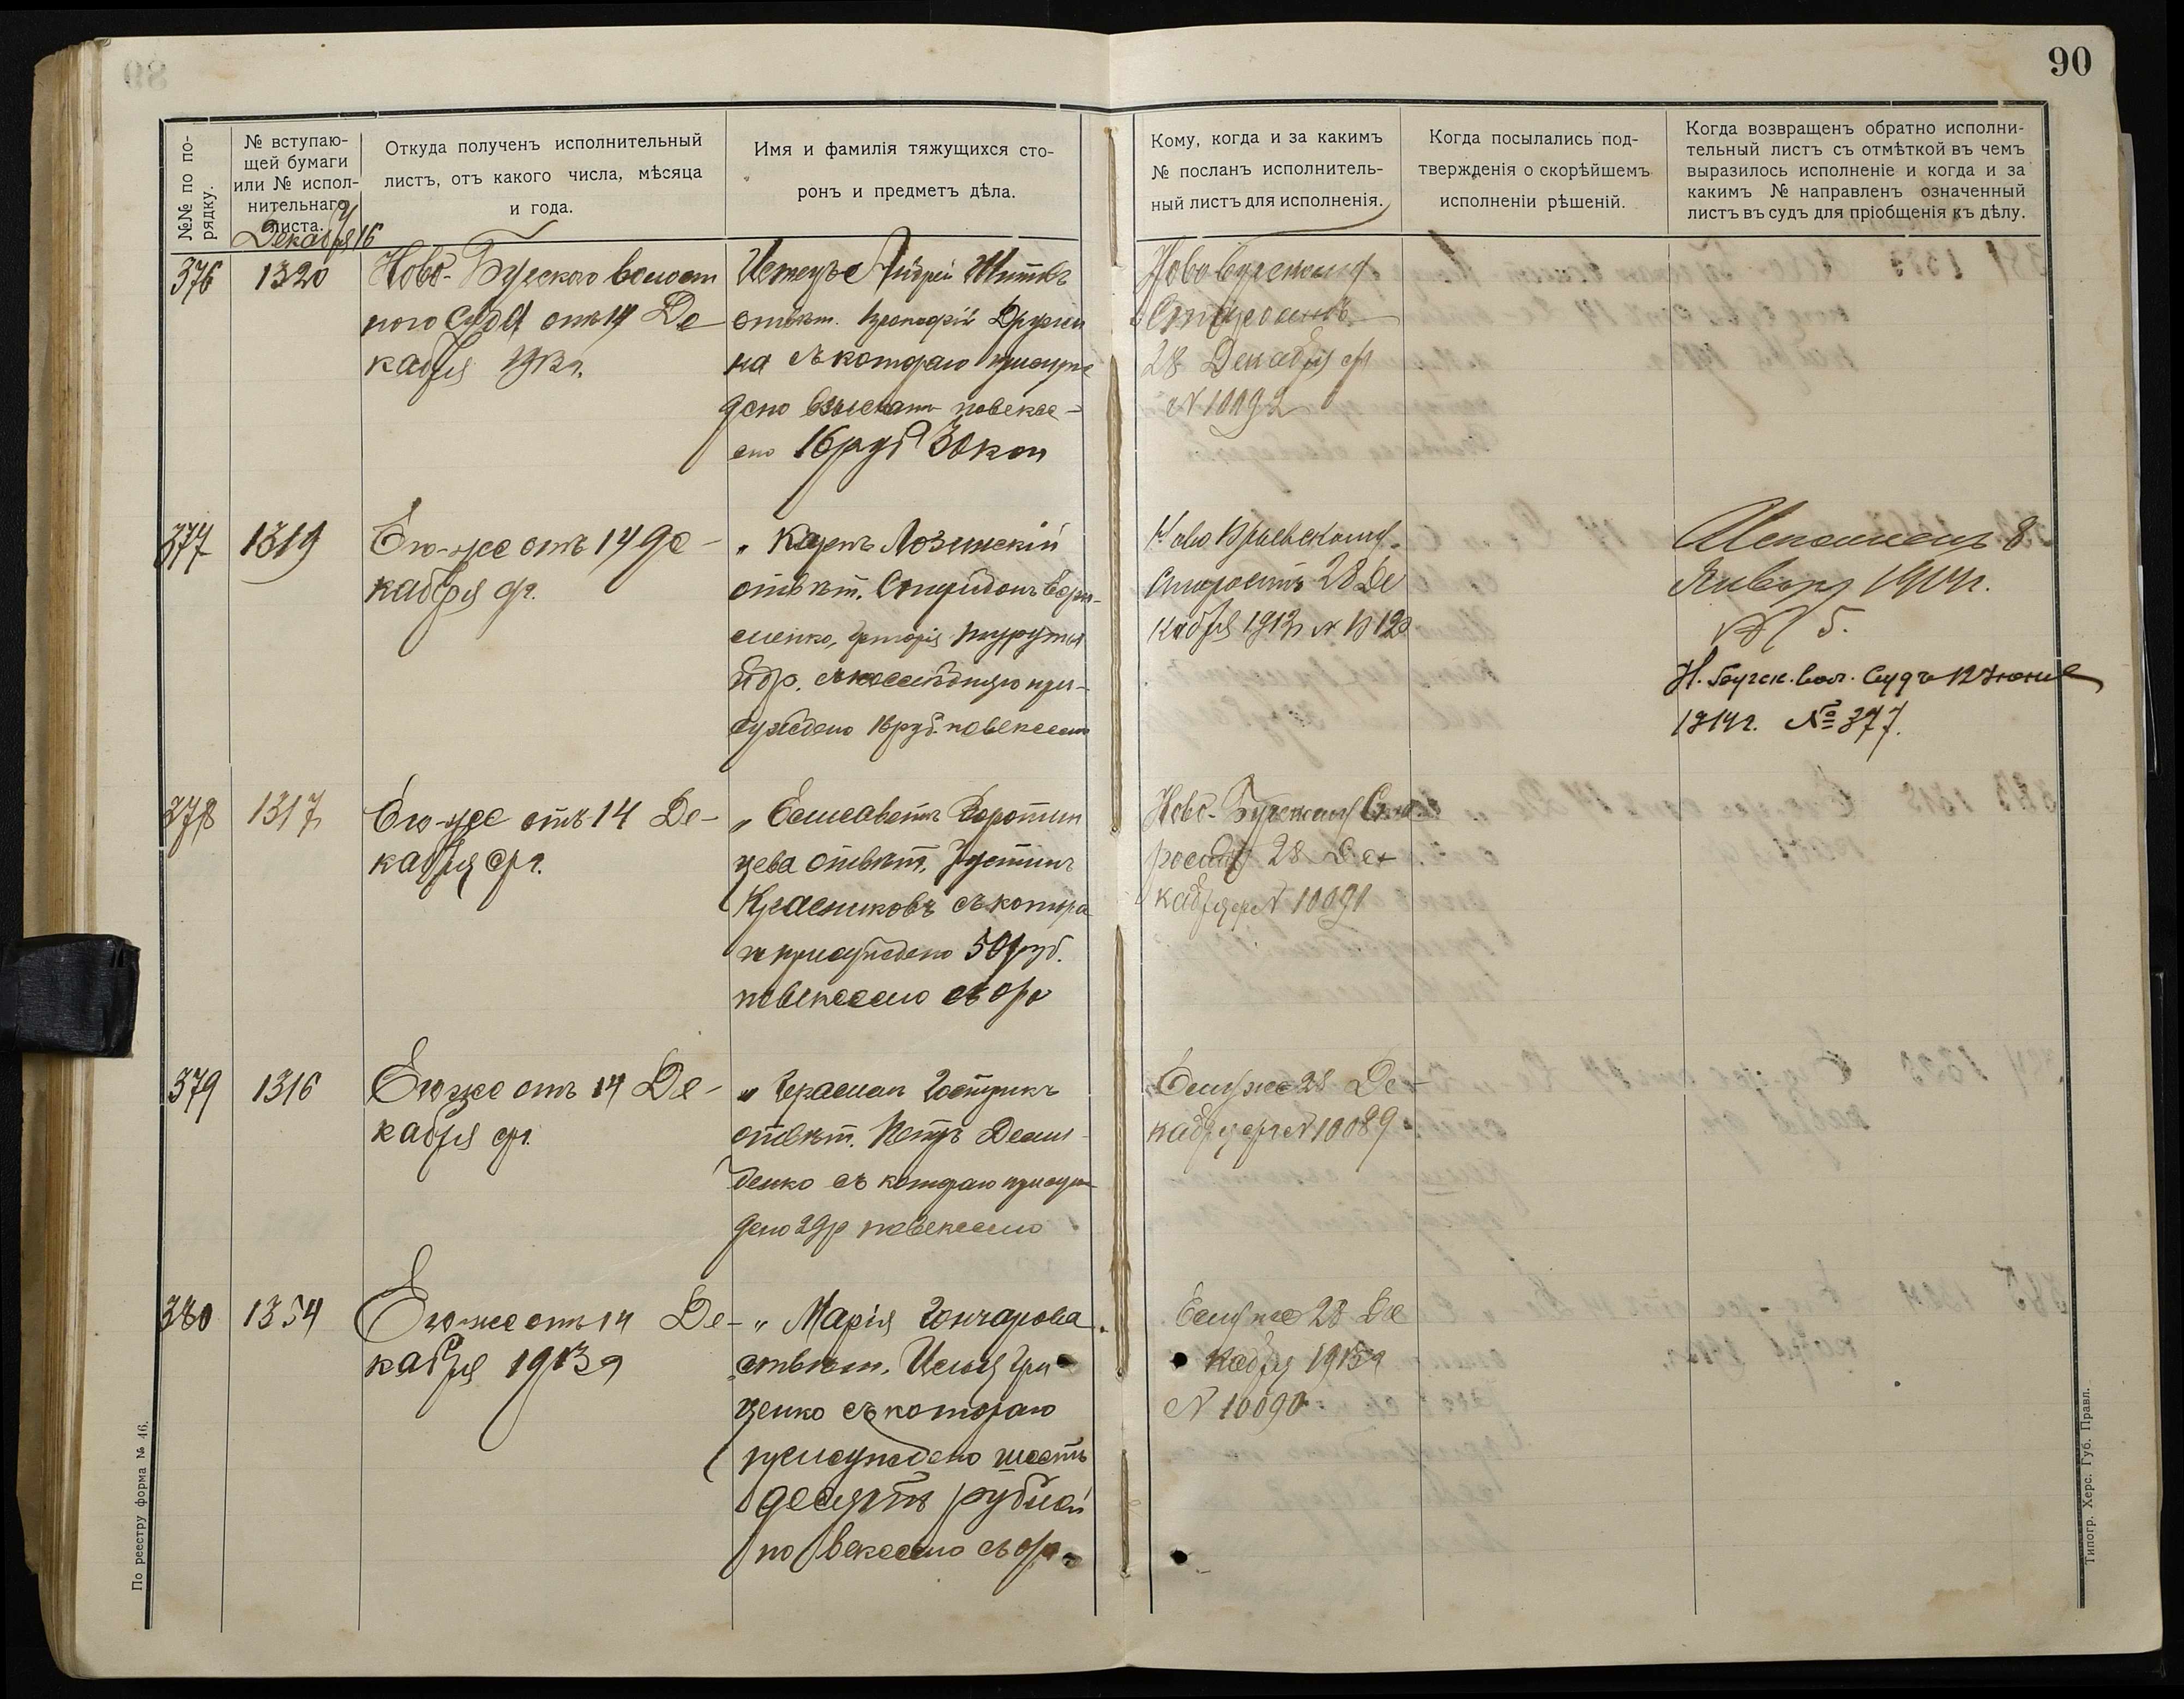 90
№№ по по-
рядку.
№ вступаю-
щей бумаги
или № испол-
нительнаго
листа.
Откуда полученъ исполнительный
листъ, отъ какого числа, мѣсяца
и года.
Имя и фамилія тяжущихся сто-
ронъ и предметъ дѣла.
Кому, когда и за какимъ
№ посланъ исполнитель-
ный листъ для исполненія.
Когда посылались под-
твержденія о скорѣйшемъ
исполненіи рѣшеній.
Когда возвращенъ обратно исполни-
тельный листъ съ отмѣткой въ чемъ
выразилось исполненіе и когда и за
какимъ № направленъ означенный
листъ въ судъ для пріобщенія къ дѣлу.
Декабря 16
376
1320
Ново-Бугскаго волост
ного Суда отъ 14 Де
кабря 1913г.
Истецъ Андрей
отвѣт. Прокофій
на съ котораго присуж
дено взыскать по вексе-
лю 16 руб 30 коп
Ново Бугскому
Старостѣ
28 Декабря сг
№ 10092
377
1319
Его-же отъ 14 де-
кабря сг.
" Карпъ Лозинскій
отвѣт. Спиридонъ
Григорія
и др. съ послѣдняго при-
суждено руб. по векселю
Старостѣ 28 Де
кабря 1913г №
Исполненъ 8
Января 1914г.
№ 5.
Н. Бугск. Вол. Судъ 12 Іюня
1914г. № 377.
378
1317
Его-же отъ 14 Де-
кабря сг.
" Елисавета Коротин
цева отвѣт. Устинъ
Красниковъ съ котора
го присуждено 50 руб.
по векселю съ др
Ново-Бугскому Ста
ростѣ 28 Де-
кабря сг № 10091
379
1316
Его же отъ 14 Де-
кабря сг.
" Герасимъ
отвѣт. Петръ Деми-
денко съ котораго присуж
дено 29р по векселю
Ему же 28 Де-
кабря сг № 10089
380
1354
Его-же отъ 14 Де-
кабря 1913г
" Марія Гончарова
отвѣт. Илья Гри
ценко съ котораго
присуждено шесть
десятъ рублей
по векселю съ др.
Ему же 28 Де
кабря 1913г
№ 10090
По реестру форма № 46.
Типогр. Херс. Губ. Правл.